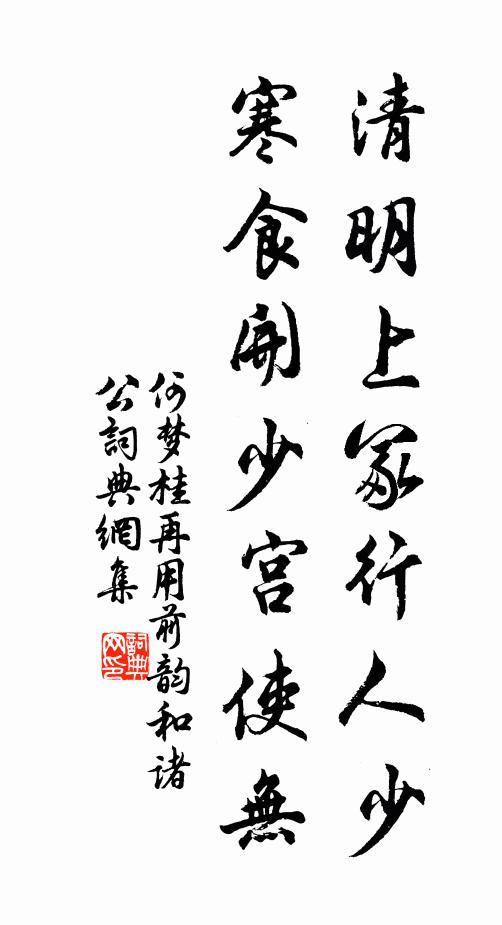 清明上冢行人少
寒食開少宫使無
何梦桂再用前韵和诸
公詞典網集
詞典
网印